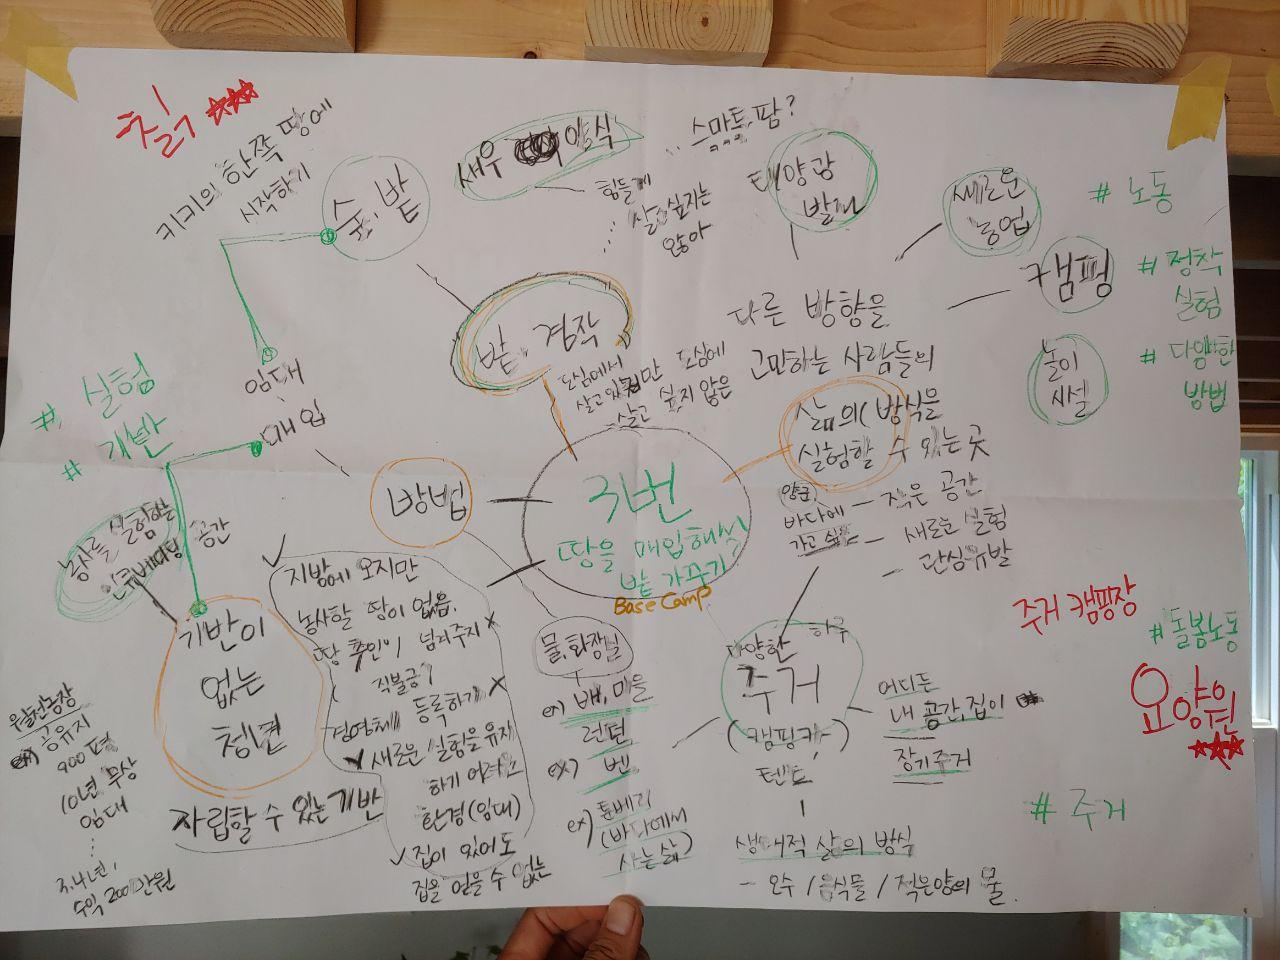 칡 ☆☆☆
키키의 한쪽 땅에
시작하기
숲, 밭
새우 양식
스마트팜?
힘들게
살고 싶지는
않아
태양광
발전
새로운
농업
캠핑
놀이
시설
# 노동
# 정착
실험
# 다양한
방법
밭, 경작
도심에서
살고 있지만 도심에
살고 싶지 않은
다른 방향을
고민하는 사람들의
삶의 (방식을
실험할 수 있는 곳
양군,
바다에
가고 싶
- 작은 공간
- 새로운 실험
- 관심유발
임대
매입
# 실험
# 기반
방법
3번
땅을 매입해서
밭 가꾸기
Base Camp
농사를 실험하는
인큐베이팅 공간
기반이
없는
청년
자립할 수 있는 기반
ex) 공유지
900평
10년 무상
임대
3,4년,
수익 200만원
✓ 지방에 오지만
농사할 땅이 없음.
땅 주인이 넘겨주지 ×
직불금
경영체 등록하기 ×
✓ 새로운 실험을 유지
하기 어려운
환경(임대)
✓ 집이 있어도
집을 얻을 수 없는
물, 화장실
ex) 배, 마을
런던
ex) 벤
ex)
(바다에서
사는 삶)
다양한 하루
주거
(캠핑카)
텐트,
어디든
내 공간, 집이
장기주거
생태적 삶의 방식
- 오수 / 음식물 / 적은양의 물.
주거 캠핑장
# 돌봄노동
요양원
☆☆☆
# 주거